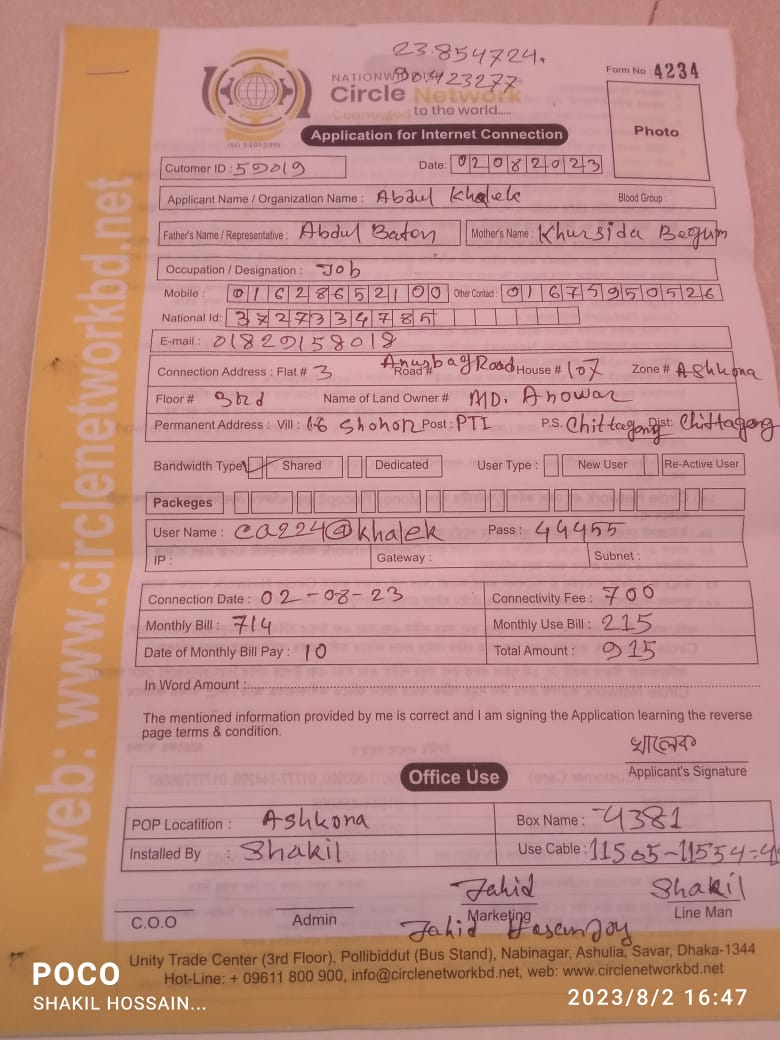 23.854724.
90.423277
NATIONWIDE ISP
Form No 4234
Circle Network
Connected to the world.....
ISO 9001:2015
Application for Internet Connection
Photo
Cutomer ID : 59019 Date: 02082023
Applicant Name / Organization Name : Abdul Khalek Blood Group :
Father's Name / Representative : Abdul Baton Mother's Name : Khursida Begum
Occupation / Designation : Job
Mobile : 01628652100 Other Contact : 01675950526
National Id: 3727334785
E-mail : 01829158018
Connection Address : Flat # 3 Road # Anusbag Road House # 107 Zone # Ashkona
Floor # 3rd Name of Land Owner # MD. Anowar
Permanent Address : Vill : Shohor Post : PTI P.S. Chittagong Dist: Chittagong
Bandwidth Type Shared Dedicated User Type : New User Re-Active User
Packeges
User Name : ca224@khalek Pass : 44455
IP : Gateway : Subnet :
Connection Date : 02-08-23 Connectivity Fee : 700
Monthly Bill : 714 Monthly Use Bill : 215
Date of Monthly Bill Pay : 10 Total Amount : 915
In Word Amount :
The mentioned information provided by me is correct and I am signing the Application learning the reverse
page terms & condition.
খালেক
Applicant's Signature
Office Use
POP Locatition : Ashkona Box Name : 4381
Installed By : Shakil Use Cable : 11505-11554=
Jahid Shakil
C.O.O Admin Marketing Line Man
Jahid Hasan Joy
Unity Trade Center (3rd Floor), Pollibiddut (Bus Stand), Nabinagar, Ashulia, Savar, Dhaka-1344
Hot-Line: + 09611 800 900, info@circlenetworkbd.net, web: www.circlenetworkbd.net
web: www.circlenetworkbd.net
POCO
SHAKIL HOSSAIN...
2023/8/2 16:47